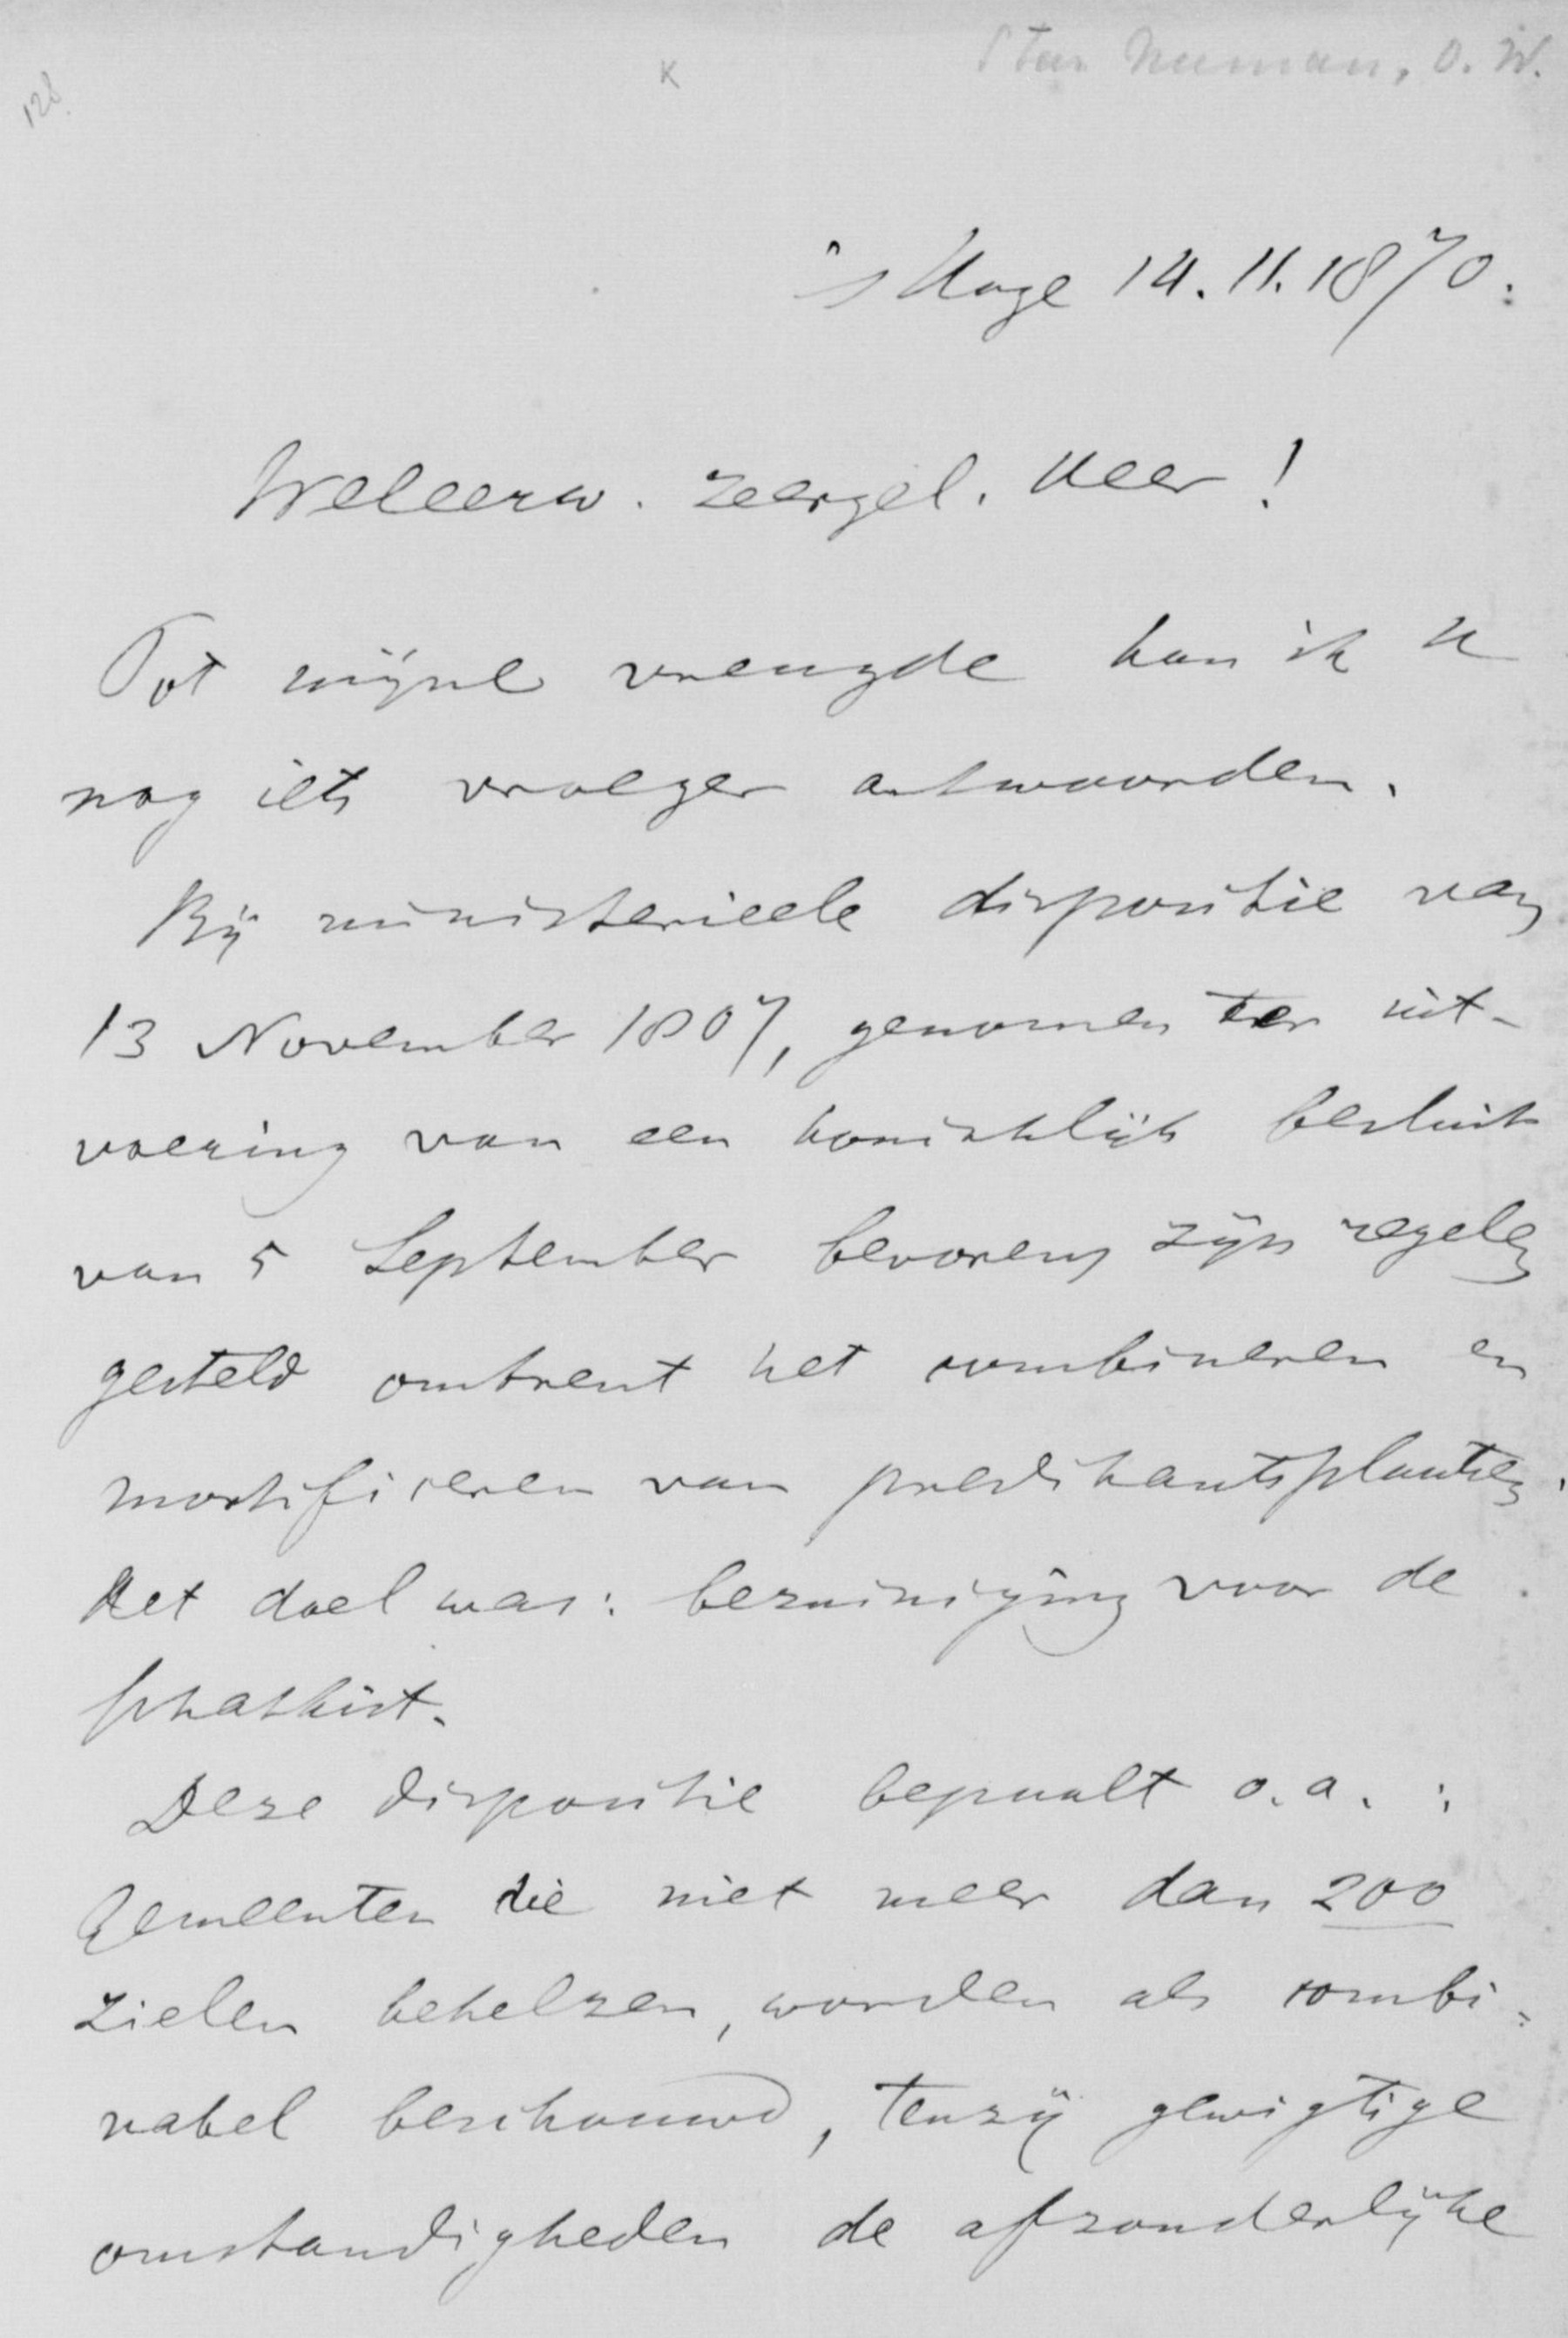 128.
K
Star Numan, O. W.
's Hage 14.11.1870.
Weleerw. zeergel. Heer!
Tot mijne vreugde kan ik U
nog iets vroeger antwoorden.
Bij ministerieele dispositie van
13 November 1807, genomen ter uit-
voering van een koninklijk besluit
van 5 September bevorens zijn regelen
gesteld omtrent het combineren en
mortificeren van predikantsplaatsen.
Het doel was: bezuiniging voor de
schatkist.
Deze dispositie bepaalt o.a.:
Gemeenten die niet meer dan 200
zielen behelzen, worden als combi-
nabel beschouwd, tenzij gewigtige
omstandigheden de afzonderlijke